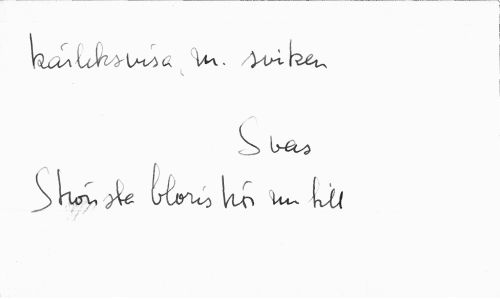 kärleksvisa, m. sviken
Svas
Skönsta Cloris hör nu till